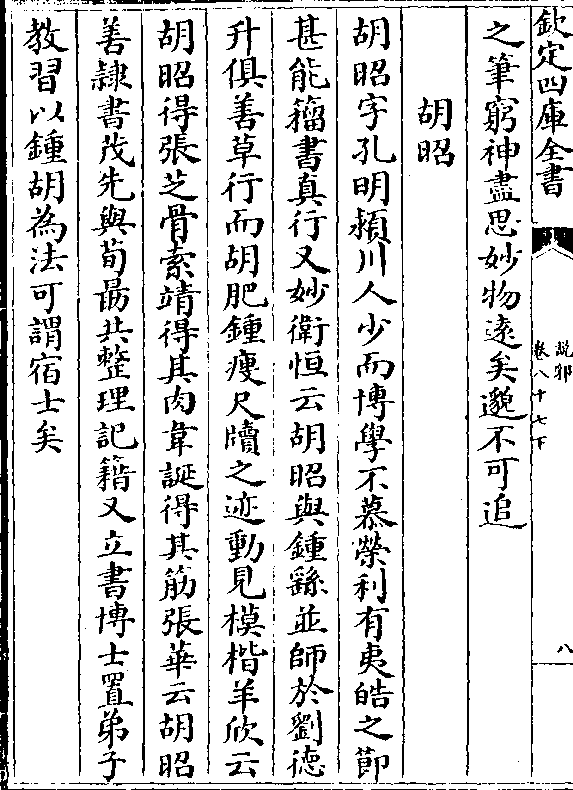 欽定四庫全書
說郛
卷八十七下
八
之筆窮神盡思妙物逺矣邈不可追
胡昭
胡昭字孔明潁川人少而博學不慕榮利有夷皓之節
甚能籕書真行又妙衛恒云胡昭與鍾繇並師於劉德
升俱善草行而胡肥鍾瘦尺牘之迹動見模楷羊欣云
胡昭得張芝骨索靖得其肉韋誕得其筋張華云胡昭
善隷書茂先與荀勗共整理記籍又立書博士置弟子
教習以鍾胡為法可謂宿士矣